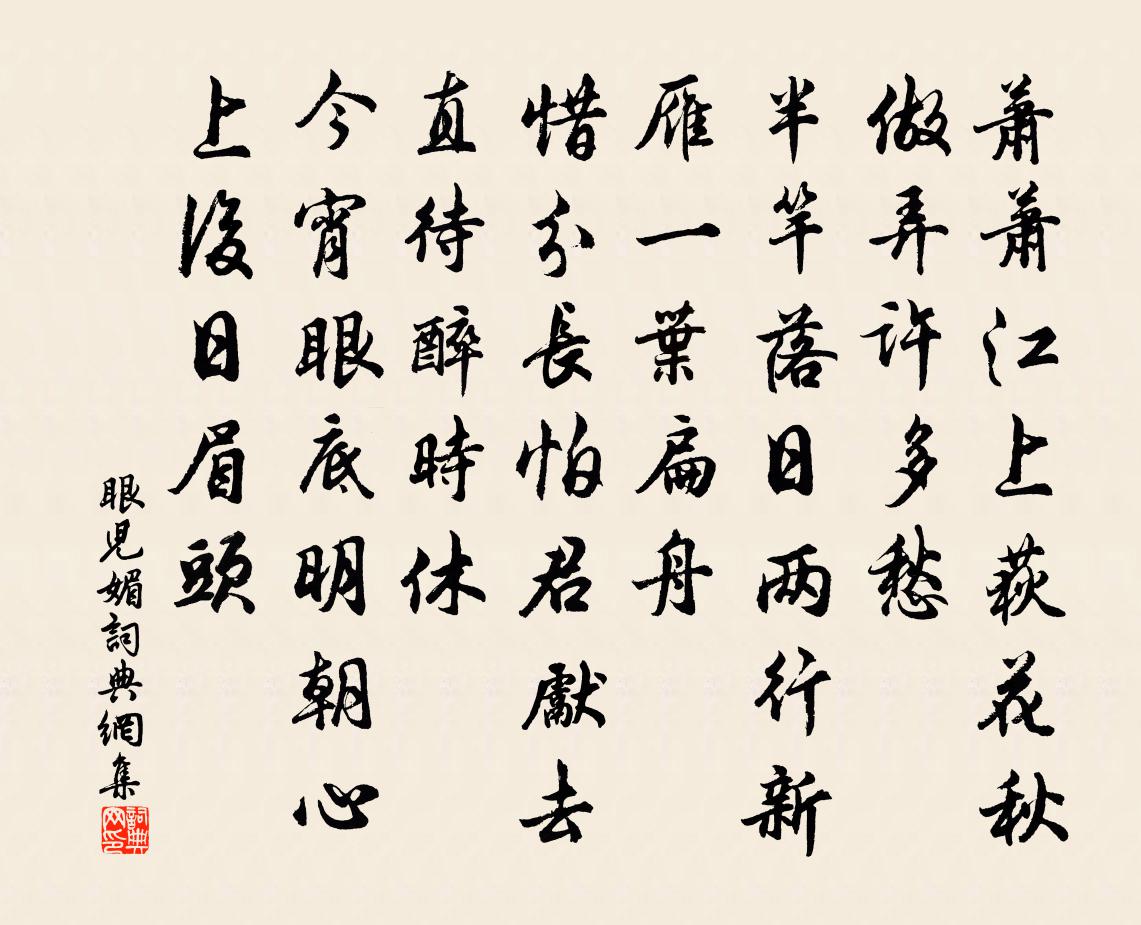 蕭蕭江上荻花秋
做弄許多愁
半竿落日两行新
雁一葉扁舟
惜分長怕君獻去
直待醉時休
今宵眼底明朝心
上後日眉頭
眼児媚詞典網集
詞典网印